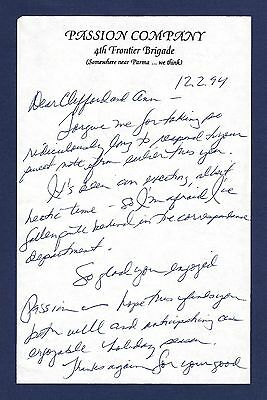 PASSION COMPANY
4th Frontier Brigade
(Somewhere near Parma ... we think)
12.2.94
Dear Clifford and Ann -
Forgive me for taking so
ridiculously long to respond to your
sweet note from earlier this year.
It's been an exciting, albeit
hectic time - so I'm afraid I've
fallen a bit behind in the correspondence
department.
So glad you enjoyed
Passion - hope this finds you
both well and anticipating an
enjoyable holiday season.
Thanks again for your good